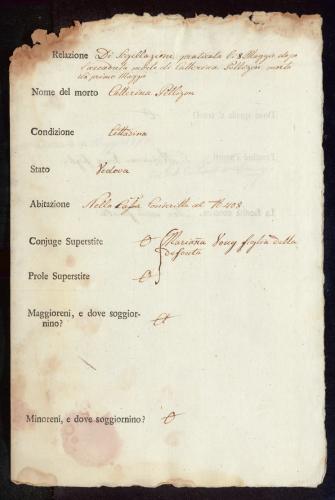 Relazione Di Sigillazione praticata li 8 Maggio dopo
l'accaduta morte di Catterina morta
li primo Maggo
Nome del morto Catterina
Condizione Cittadina
Stato Vedova
Abitazione Nella Casa Inscritta al N 408
Conjuge Superstite Marianna figlia della
defonta
Prole Superstite
Maggioreni, e dove soggior-
nino?
Minoreni, e dove soggiornino?